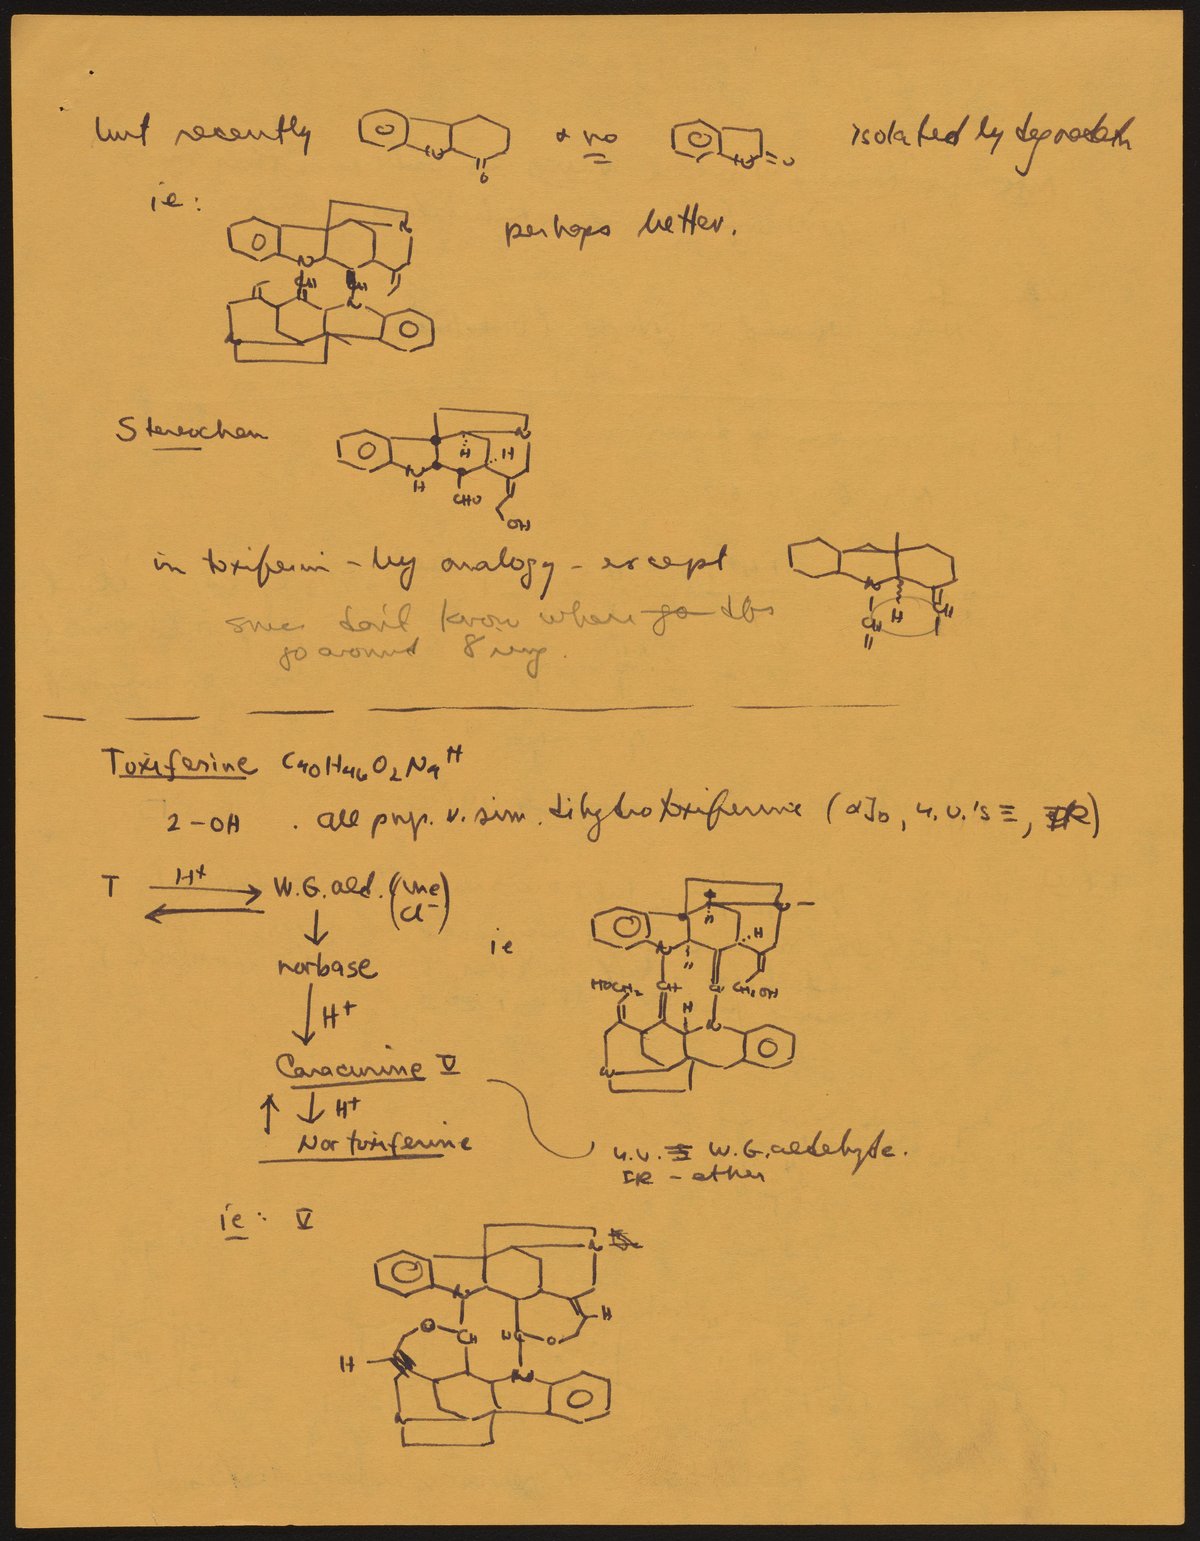 but recently & no isolated by degradatn
ie:
perhaps better.
Stereochem
in toxiferin - by analogy - except
since don't know where go dbs
go around 8 ring.
Toxiferine C40H46O2N4 ++
2-OH . all prop. v. sim. dihydrotoxiferine (α]D, u.v.'s ≡, IR)
T H+ W.G. ald. (me Cl-)
ie
norbase
H+
Caracurine V
H+
Nortoxiferine
u.v. ≡ W.G. aldehyde.
IR - ether
ie: V